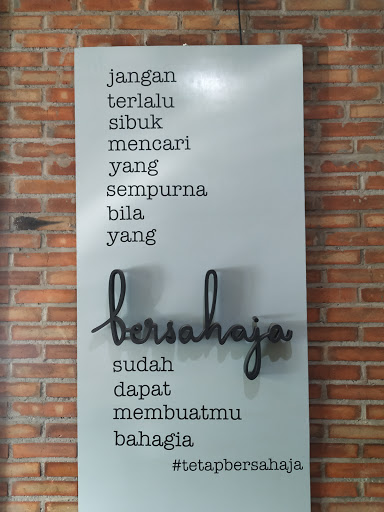 jangan
terlalu
sibuk
mencari
yang
sempurna
bila
yang
bersahaja
sudah
dapat
membuatmu
bahagia
#tetapbersahaja